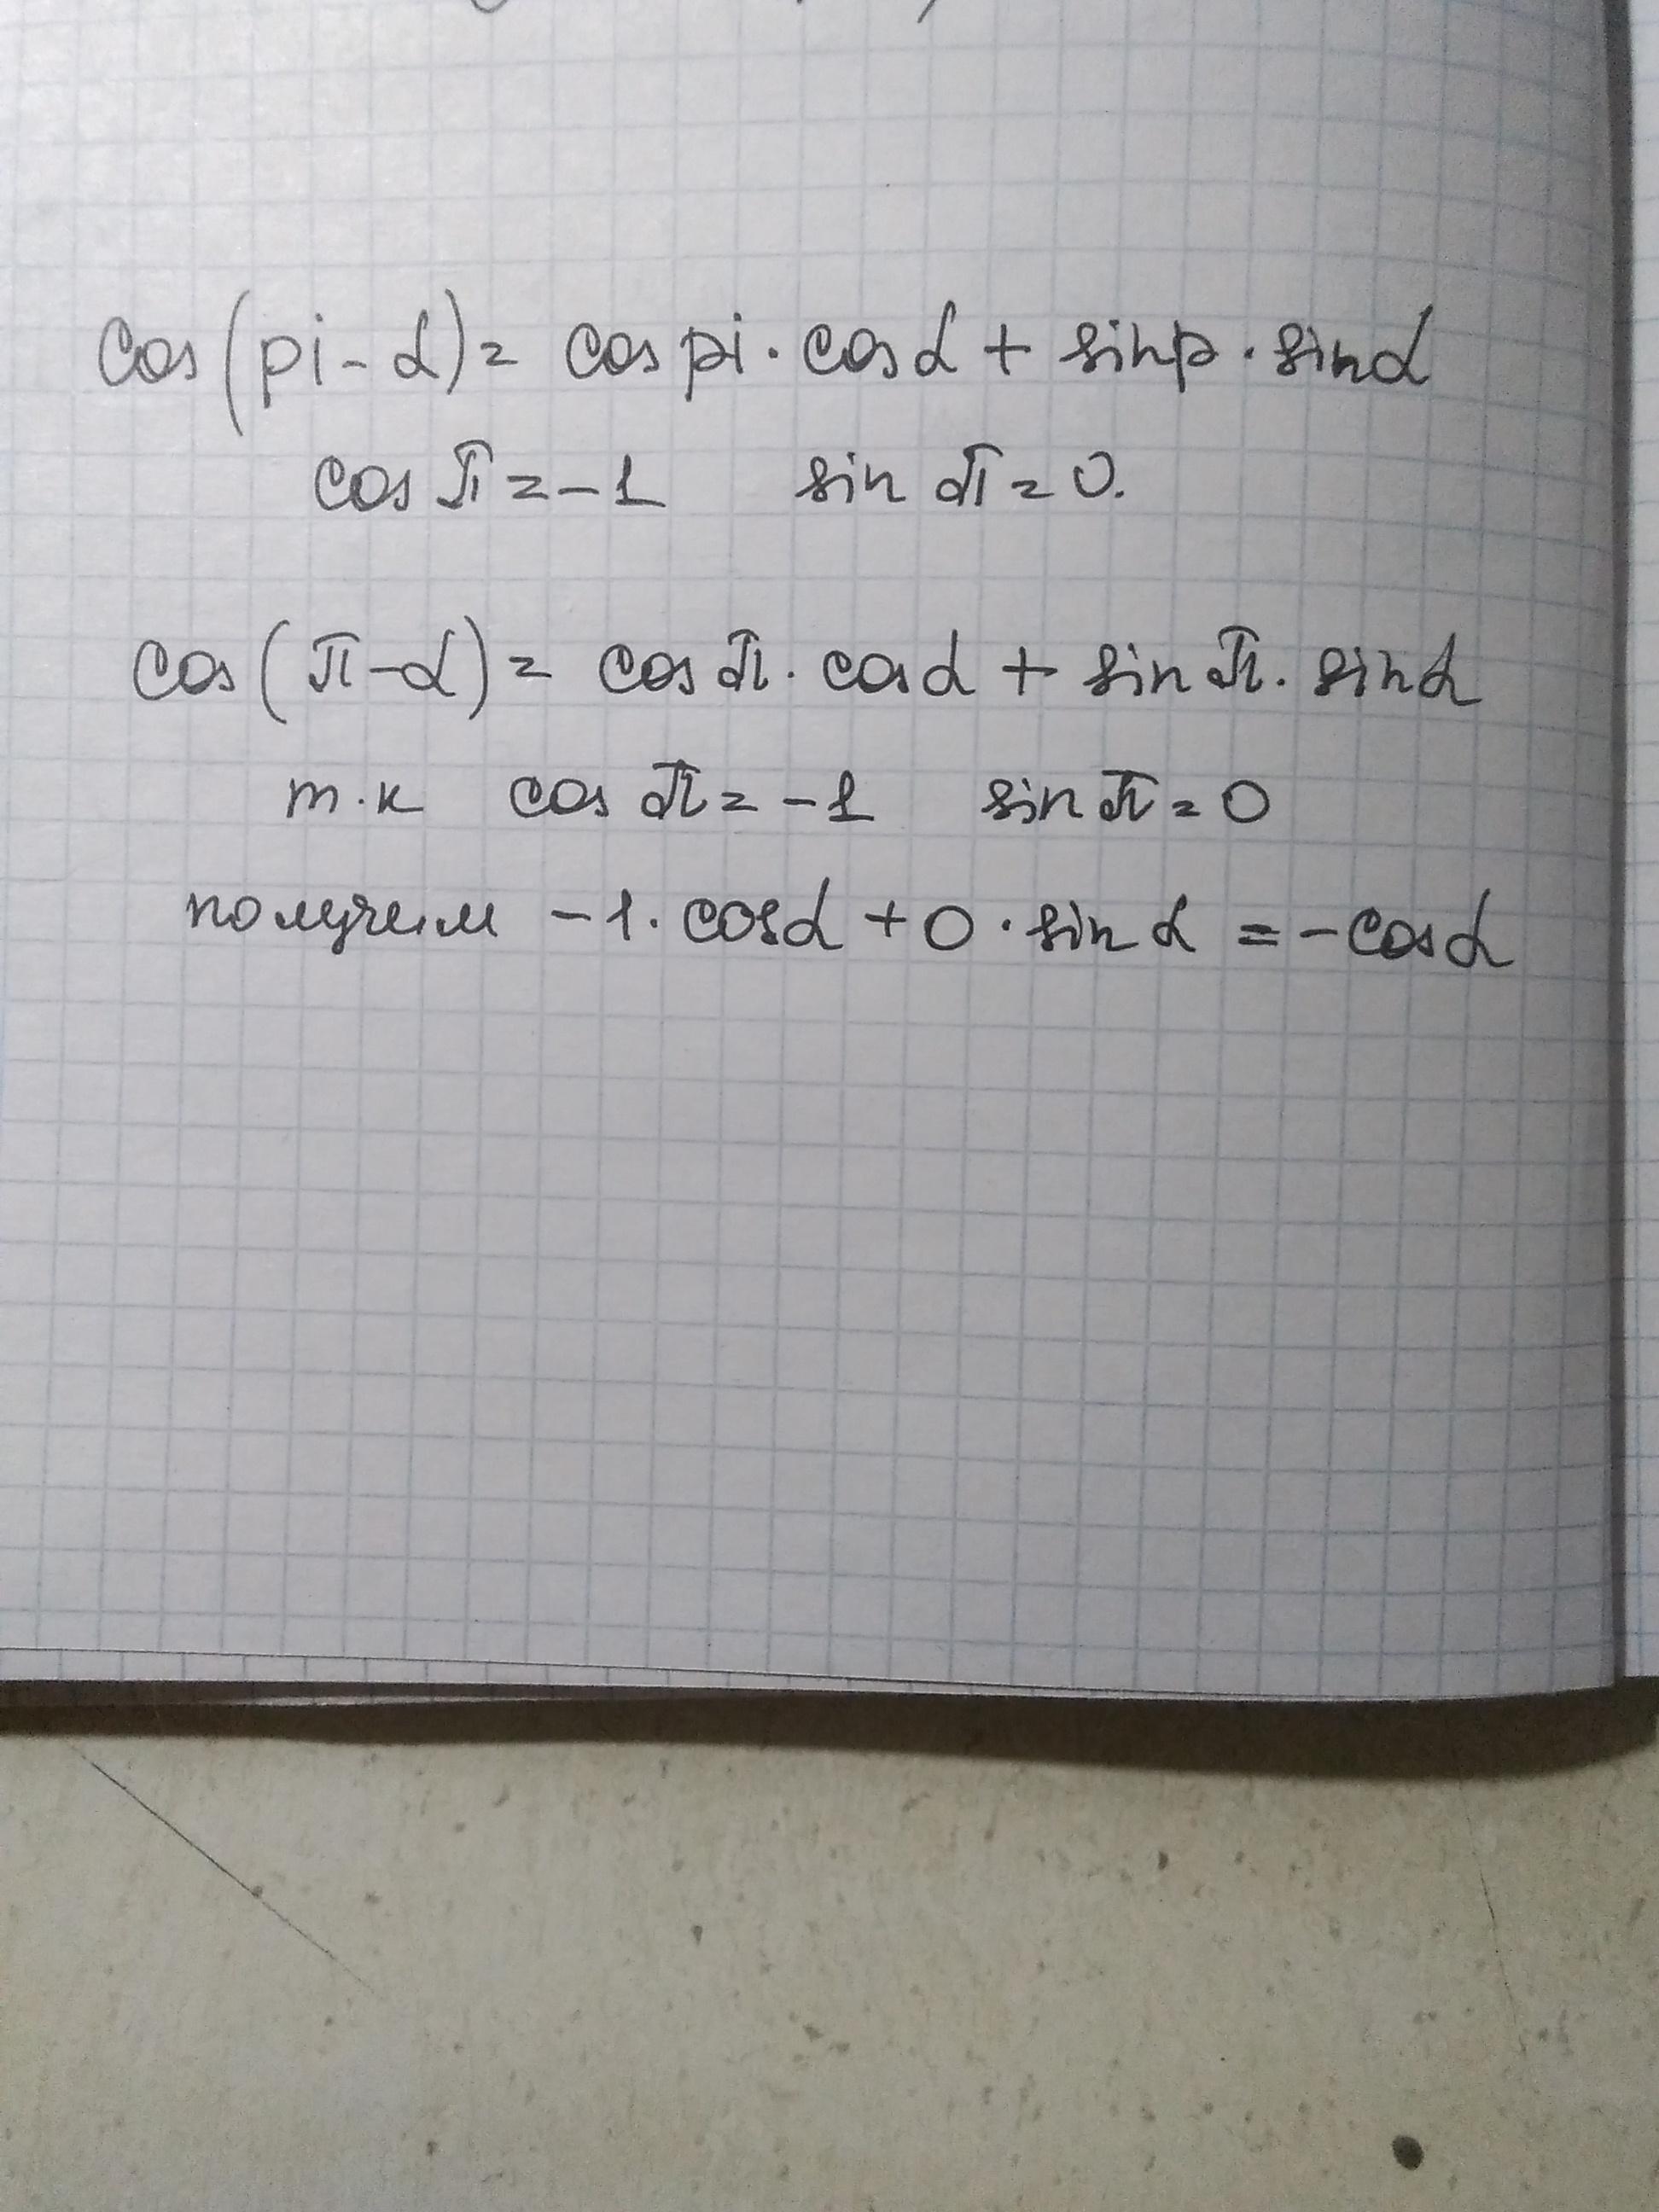 cos(pi-α)= cos pi · cosα + sinp · sinα
cos π = -1 sin π = 0.
cos(π-α)= cos π · cosα + sin π · sinα
т.к cos π = -1 sin π = 0
получим -1 · cosα + 0 · sin α = -cosα